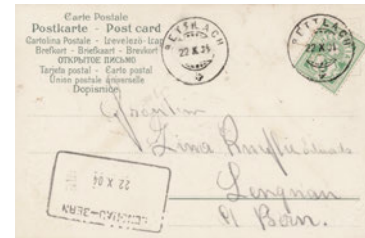 Carte Postale
Postkarte - Post card
Cartolina Postale - Levelező-
Brefkort - Briefkaart - Brevkort
ОТКРЫТОЕ ПИСЬМО
Tarjeta postal - Carta postal
Union postale universelle
Dopisnice
BETTLACH
22 X 04
BETTLACH
22 X 04
Lina
Lengnau
Bern.
22 X 04
LENGNAU-BERN